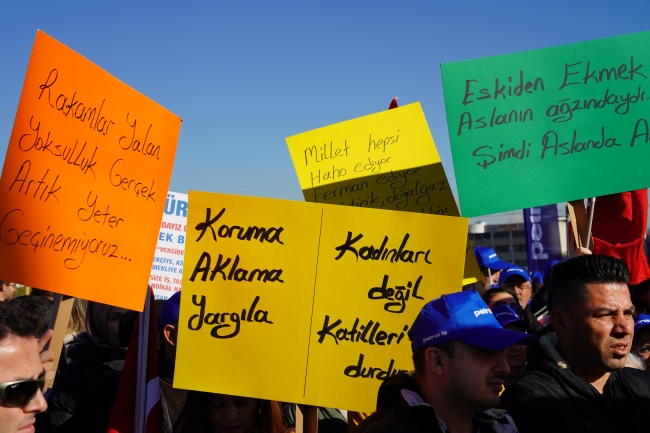 Rakamlar Yalan
Yoksulluk Gerçek
Artık Yeter
Geçinemiyoruz...
Millet hepsi
Haho ediyor
ferman ediyor
doğalgaz
Eskiden Ekmek
Aslanın ağzındaydı.
Şimdi Aslanda
Koruma
AKlama
Yargıla
Kadınları
değil
Katilleri
durdur
petrol-iş